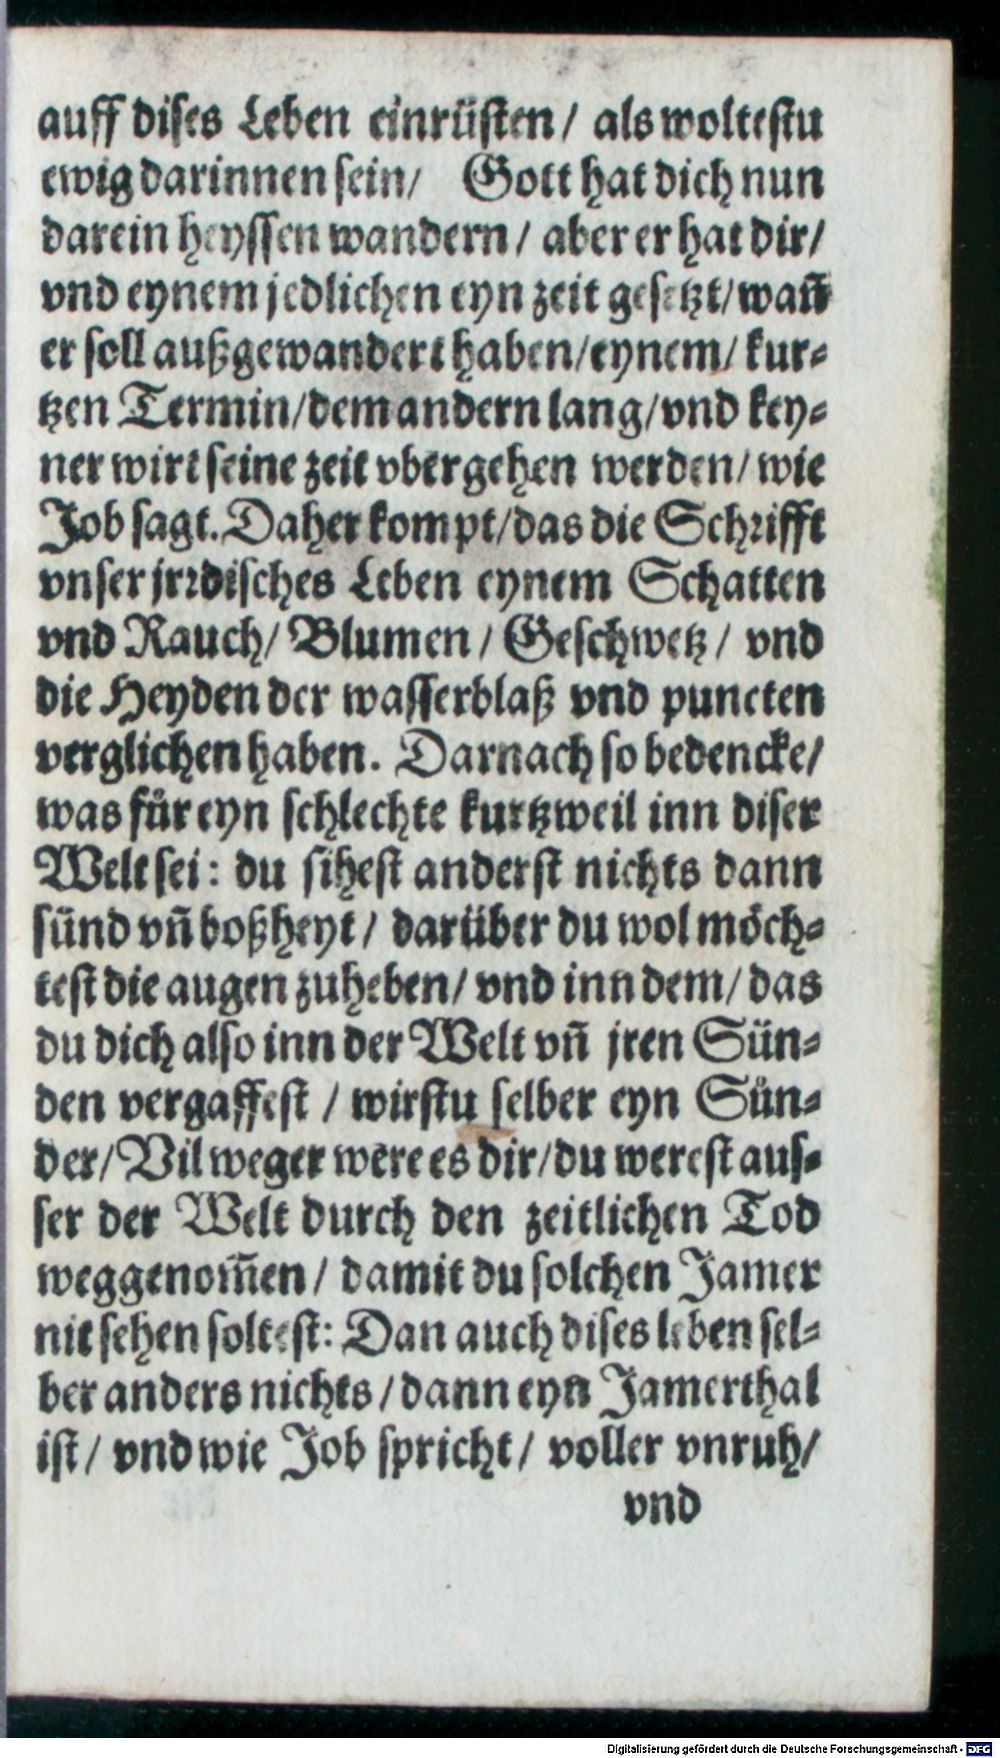 auff dises Leben einrüsten / als woltestu
ewig darinnen sein / Gott hat dich nun
darein heyssen wandern / aber er hat dir /
vnd eynem jedlichen eyn zeit gesetzt / wañ
er soll außgewandert haben / eynem / kur⸗
tzen Termin / dem andern lang / vnd key⸗
ner wirt seine zeit vbergehen werden / wie
Job sagt. Daher kompt / das die Schrifft
vnser jrrdisches Leben eynem Schatten
vnd Rauch / Blumen / Geschwetz / vnd
die Heyden der wasserblaß vnd puncten
verglichen haben. Darnach so bedencke /
was für eyn schlechte kurtzweil inn diser
Welt sei : du sihest anderst nichts dann
sünd vñ boßheyt / darüber du wol möch⸗
test die augen zuheben / vnd inn dem / das
du dich also inn der Welt vñ jren Sün⸗
den vergaffest / wirstu selber eyn Sün⸗
der / Vil weger were es dir / du werest aus⸗
ser der Welt durch den zeitlichen Tod
weggenom̃en / damit du solchen Jamer
nit sehen soltest : Dan auch dises leben sel⸗
ber anders nichts / dann eyn Jamerthal
ist / vnd wie Job spricht / voller vnruh /
vnd
Digitalisierung gefördert durch die Deutsche Forschungsgemeinschaft - DFG